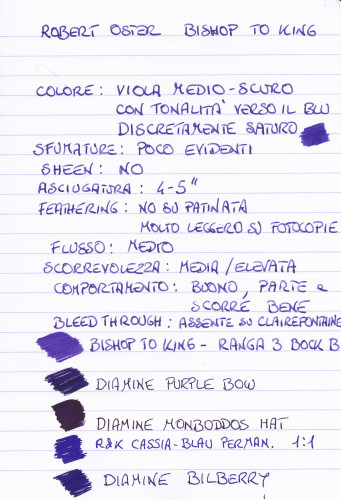 ROBERT OSTER BISHOP TO KING
COLORE: VIOLA MEDIO-SCURO
CON TONALITA' VERSO IL BLU
DISCRETAMENTE SATURO
SFUMATURE: POCO EVIDENTI
SHEEN: NO
ASCIUGATURA: 4-5"
FEATHERING: NO SU PATINATA
MOLTO LEGGERO SU FOTOCOPIE
FLUSSO: MEDIO
SCORREVOLEZZA: MEDIA/ELEVATA
COMPORTAMENTO: BUONO, PARTE e
SCORRE BENE
BLEED THROUGH: ASSENTE SU CLAIREFONTAINE
BISHOP TO KING - RANGA 3 BOCK B
DIAMINE PURPLE BOW
DIAMINE MONBODDOS HAT
R&K CASSIA-BLAU PERMAN. 1:1
DIAMINE BILBERRY